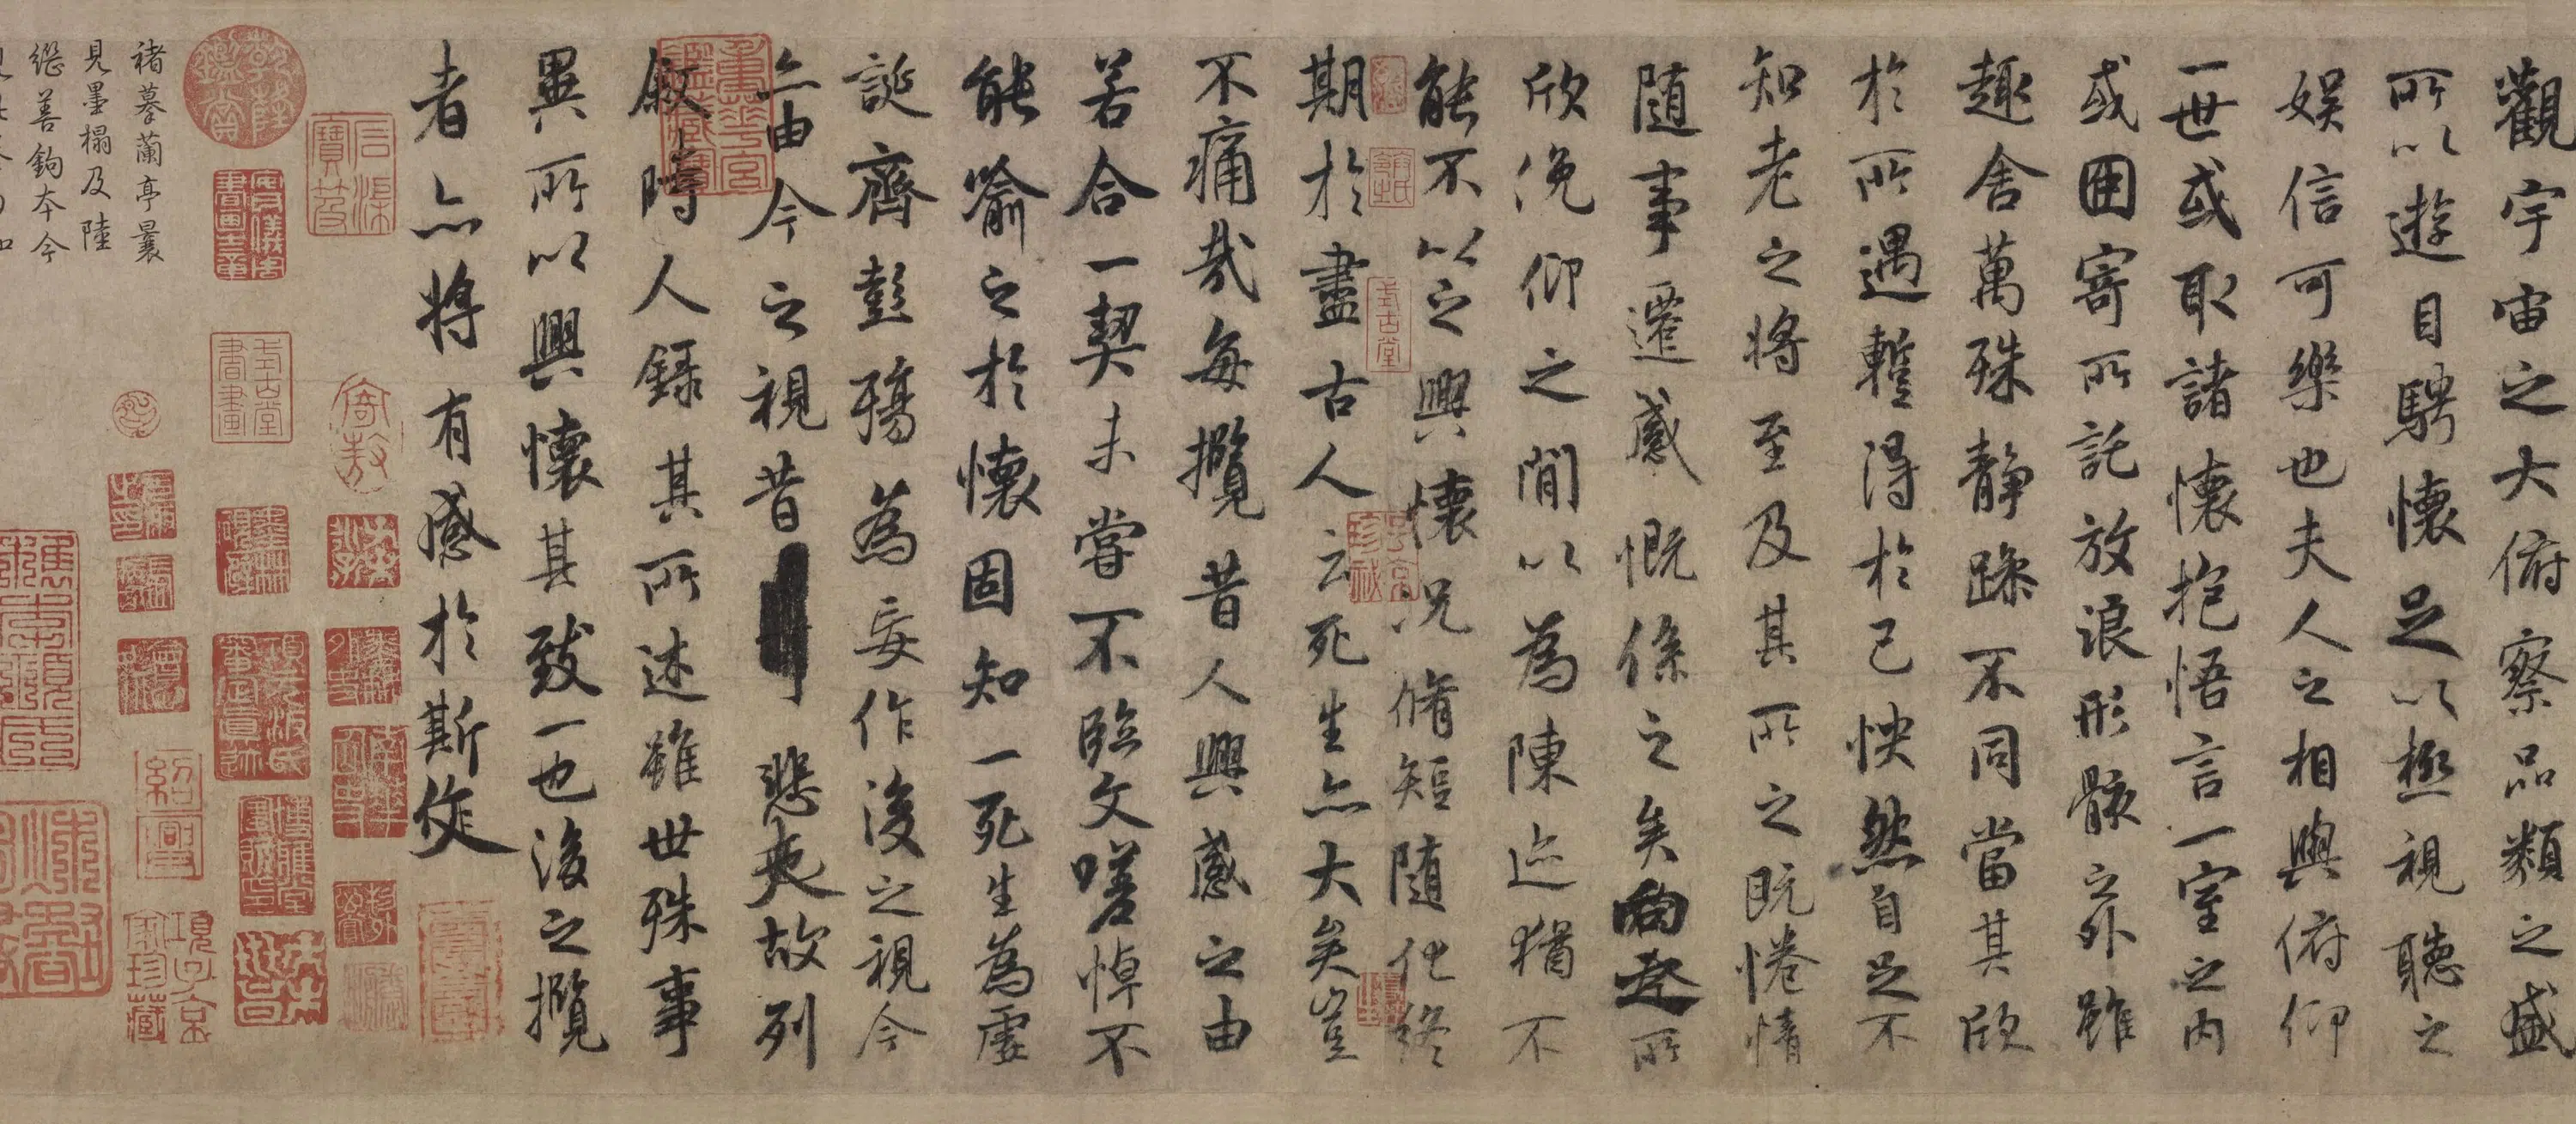 觀宇宙之大俯察品類之盛
所以遊目騁懷足以極視聽之
娛信可樂也夫人之相與俯仰
一世或取諸懷抱悟言一室之內
或因寄所託放浪形骸之外雖
趣舍萬殊靜躁不同當其欣
於所遇蹔得於己怏然自足不
知老之將至及其所之既惓情
隨事遷感慨係之矣向之所
欣俛仰之閒以為陳迹猶不
能不以之興懷況脩短隨化終
期於盡古人云死生亦大矣豈
不痛哉每攬昔人興感之由
若合一契未嘗不臨文嗟悼不
能喻之於懷固知一死生為虛
誕齊彭殤為妄作後之視今
亦由今之視昔悲夫故列
敘時人錄其所述雖世殊事
異所以興懷其致一也後之攬
者亦將有感於斯文
褚摹蘭亭曩
見墨榻及陸
繼善鉤本今